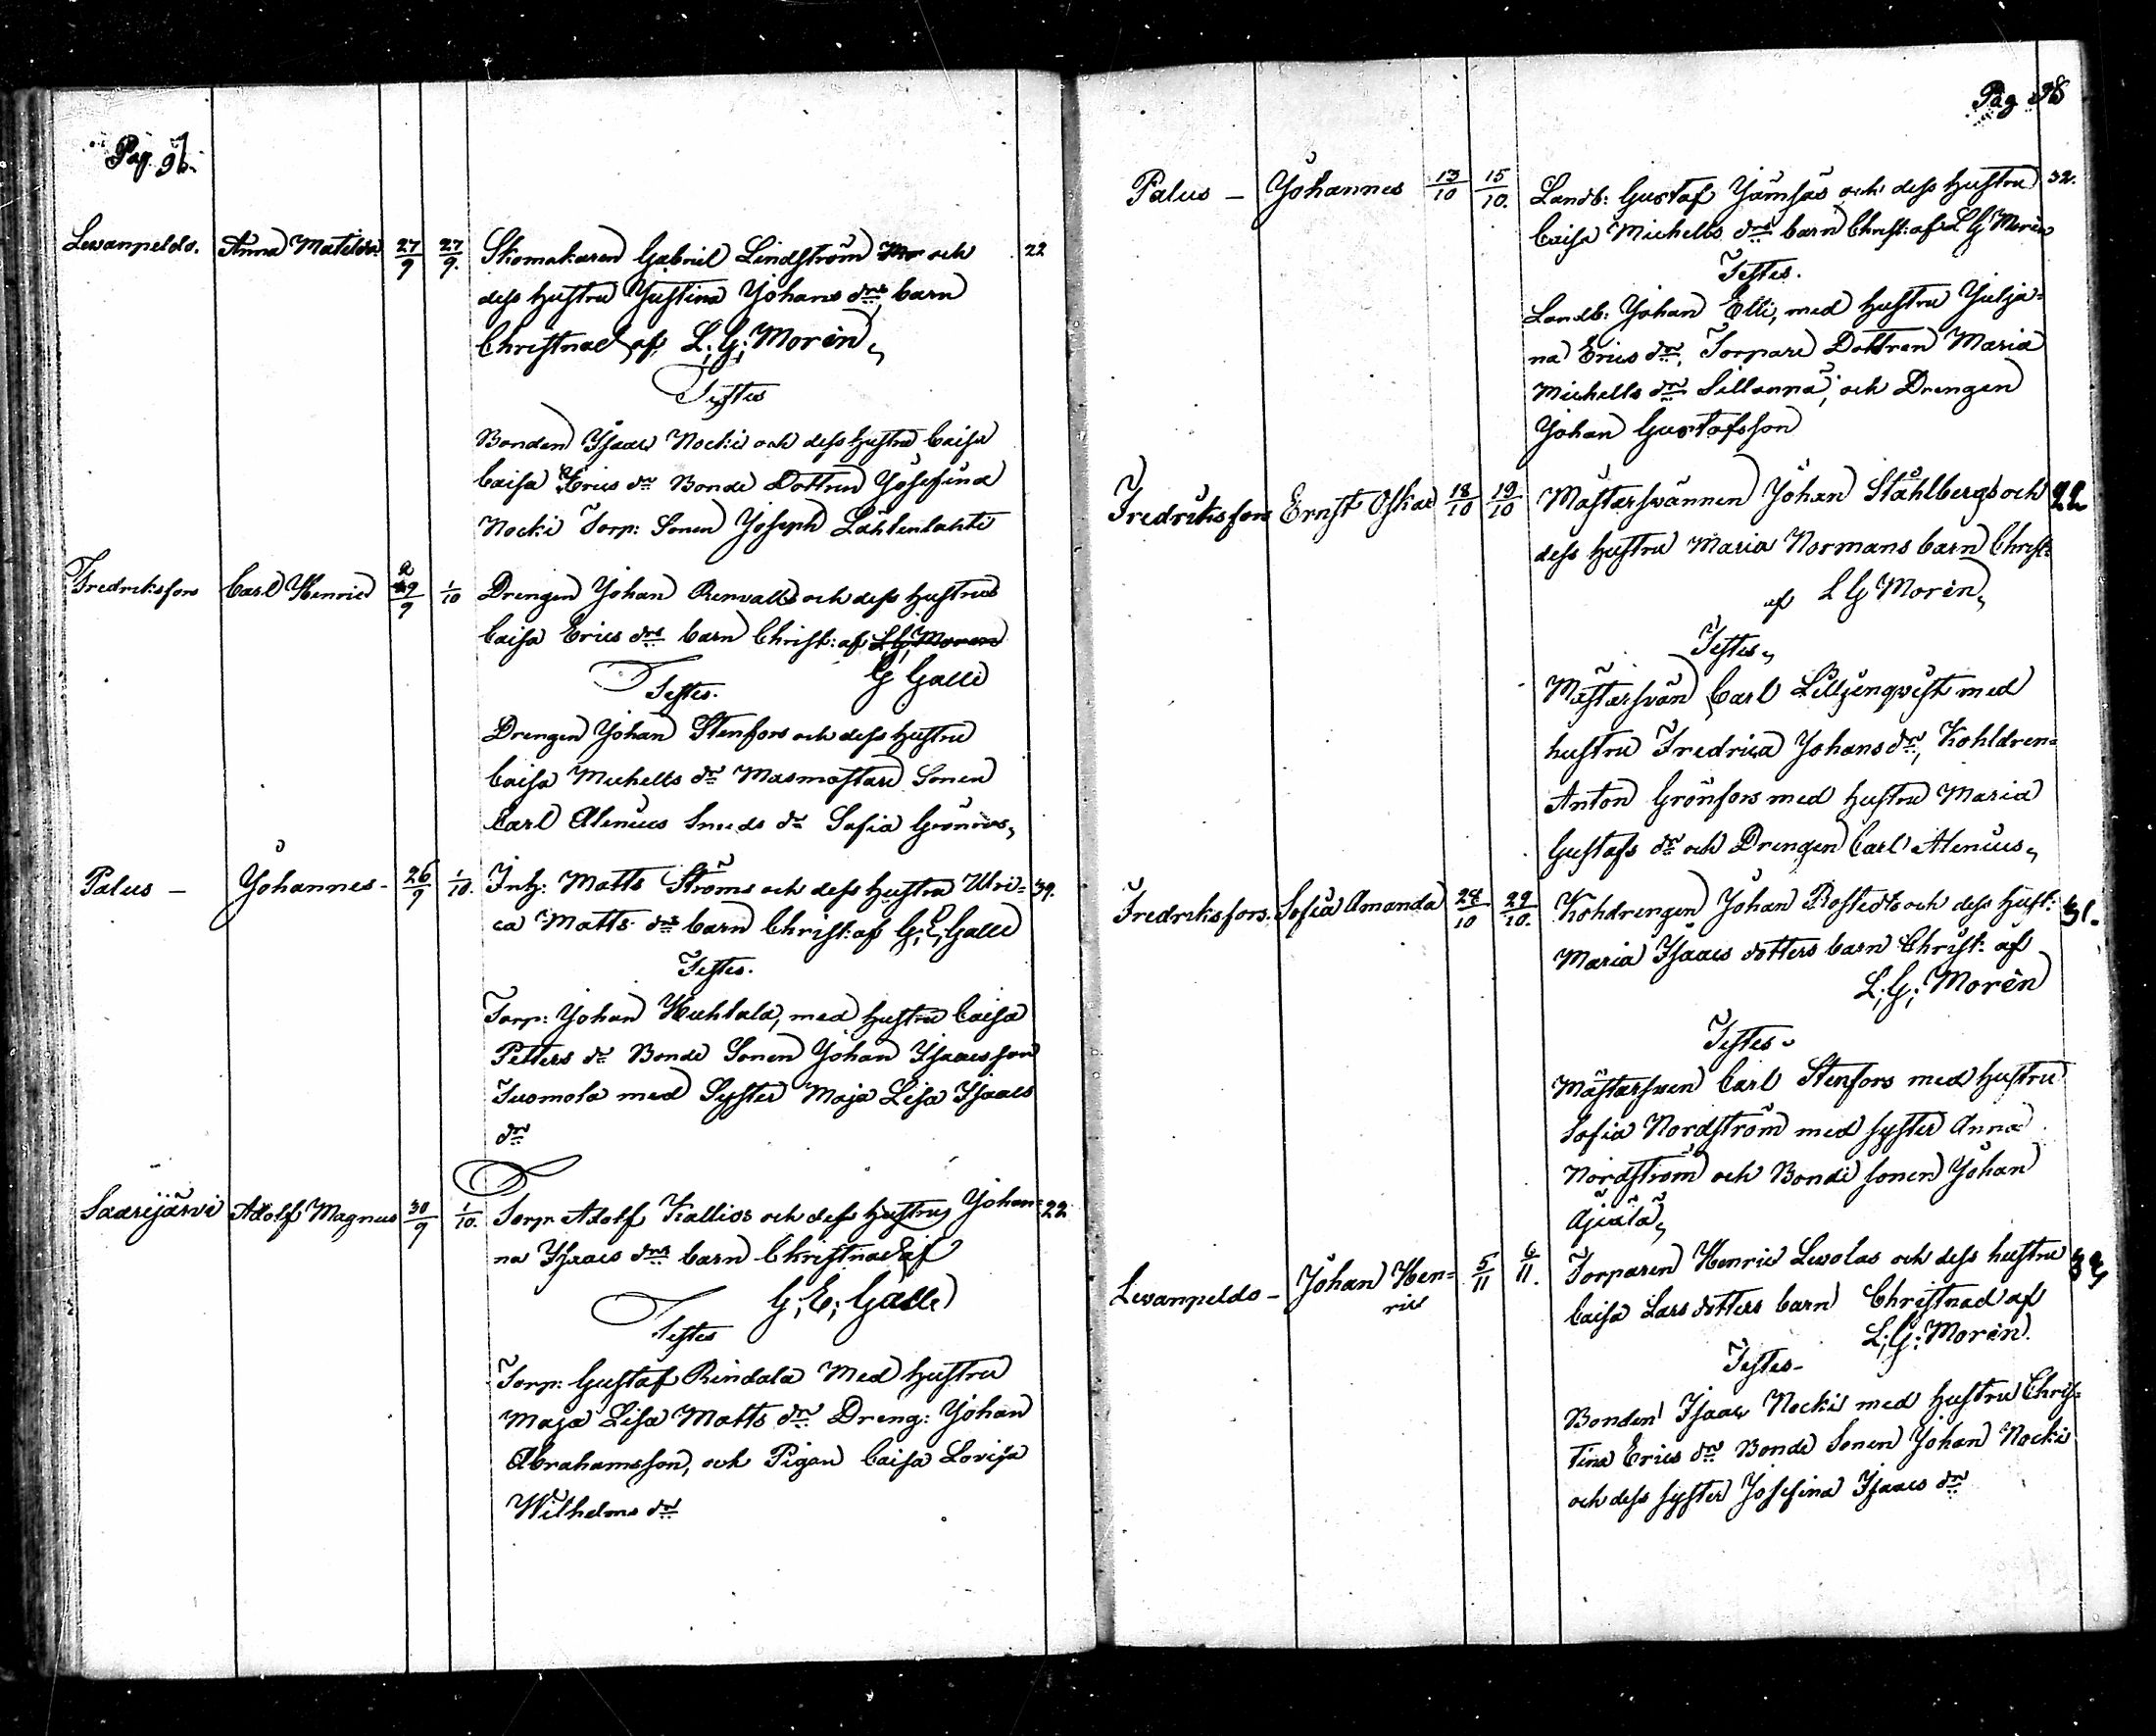 Pag. 97.
Lewanpeldo. Anna Matilda 27/9 27/9. Skomakaren Gabriel Lindström och 22
dess hustru Justina Johans dr:s barn
Christnad af L; G; Morén,
Testes
Bonden Isaac Nocki och dess hustru Caisa
Caisa Erics dr Bonde Dottren Josefina
Nocki Torp: Sonen Joseph Lähtenlahti
Fredriksfors Carl Henric 29/9 1/10 Drengen Johan Renvalls och dess hustrus
Caisa Erics drs barn Christ: af L; G; Moren
G Galle
Testes.
Drengen Johan Stenfors och dess hustru
Caisa Michells dr Masmästare Sonen
Carl Alenius Smeds dr Sofia Grönroos,
Palus - Johannes - 26/9 1/10. Inh: Matts Ströms och dess hustru Ulri= 39.
ca Matts drs barn Christ: af G; E; Galle
Testes.
Torp: Johan Huhtala, med hustru Caisa
Petters dr Bonde Sonen Johan Isaacsson
Tuomola med Syster Maja Lisa Isaacs
dr
Saarijärvi Adolf Magnus 30/9 1/10. Torp Adolf Kallios och dess hustru Johan= 22
na Isaacs drs barn Christnad af
G; E; Galle
Testes
Torp: Gustaf Rindala Med hustru
Maja Lisa Matts dr Dreng: Johan
Abrahamsson, och Pigan Caisa Lovisa
Wilhelms dr
Pag 98
Palus - Johannes 13/10 15/10. Landb: Gustaf Jämsäs och dess hustru 32.
Caisa Michells drs barn Christ: af L G Morén
Testes.
Landb: Johan Elli, med hustru Julja=
na Erics dr, Torpare Dottren Maria
Michells dr Sillanpä, och Drengen
Johan Gustafsson
Fredriksfors Ernst Oskar 18/10 19/10 Mästarswännen Johan Ståhlbergs och 22
dess hustru Maria Normans barn Christ:
af L G Morén,
Testes,
Mästarswän Carl Lilljenqwist med
hustru Fredrica Johans dr, Kohldren=
Anton Grönfors med hustru Maria
Gustafs dr och Drengen Carl Alenius,
Fredriksfors. Sofia Amanda 28/10 29/10. Kohdrengen Johan Rostedts och dess hust: 31.
Maria Isaacs dotters barn Christ: af
L; G; Morén
Testes -
Mästarswen Carl Stenfors med hustru
Sofia Nordström med syster Anna
Nordström och Bonde sonen Johan
Äjälä,
Lewanpeldo - Johan Hen= 5/11 6/11. Torparen Henric Lewolas och dess hustru
ric Caisa Lars dotters barn Christnad af
L; G; Morén.
Testes -
Bonden Isaac Nocki med hustru Chris=
tina Erics dr Bonde Sonen Johan Nocki
och dess syster Josefina Isaacs dr